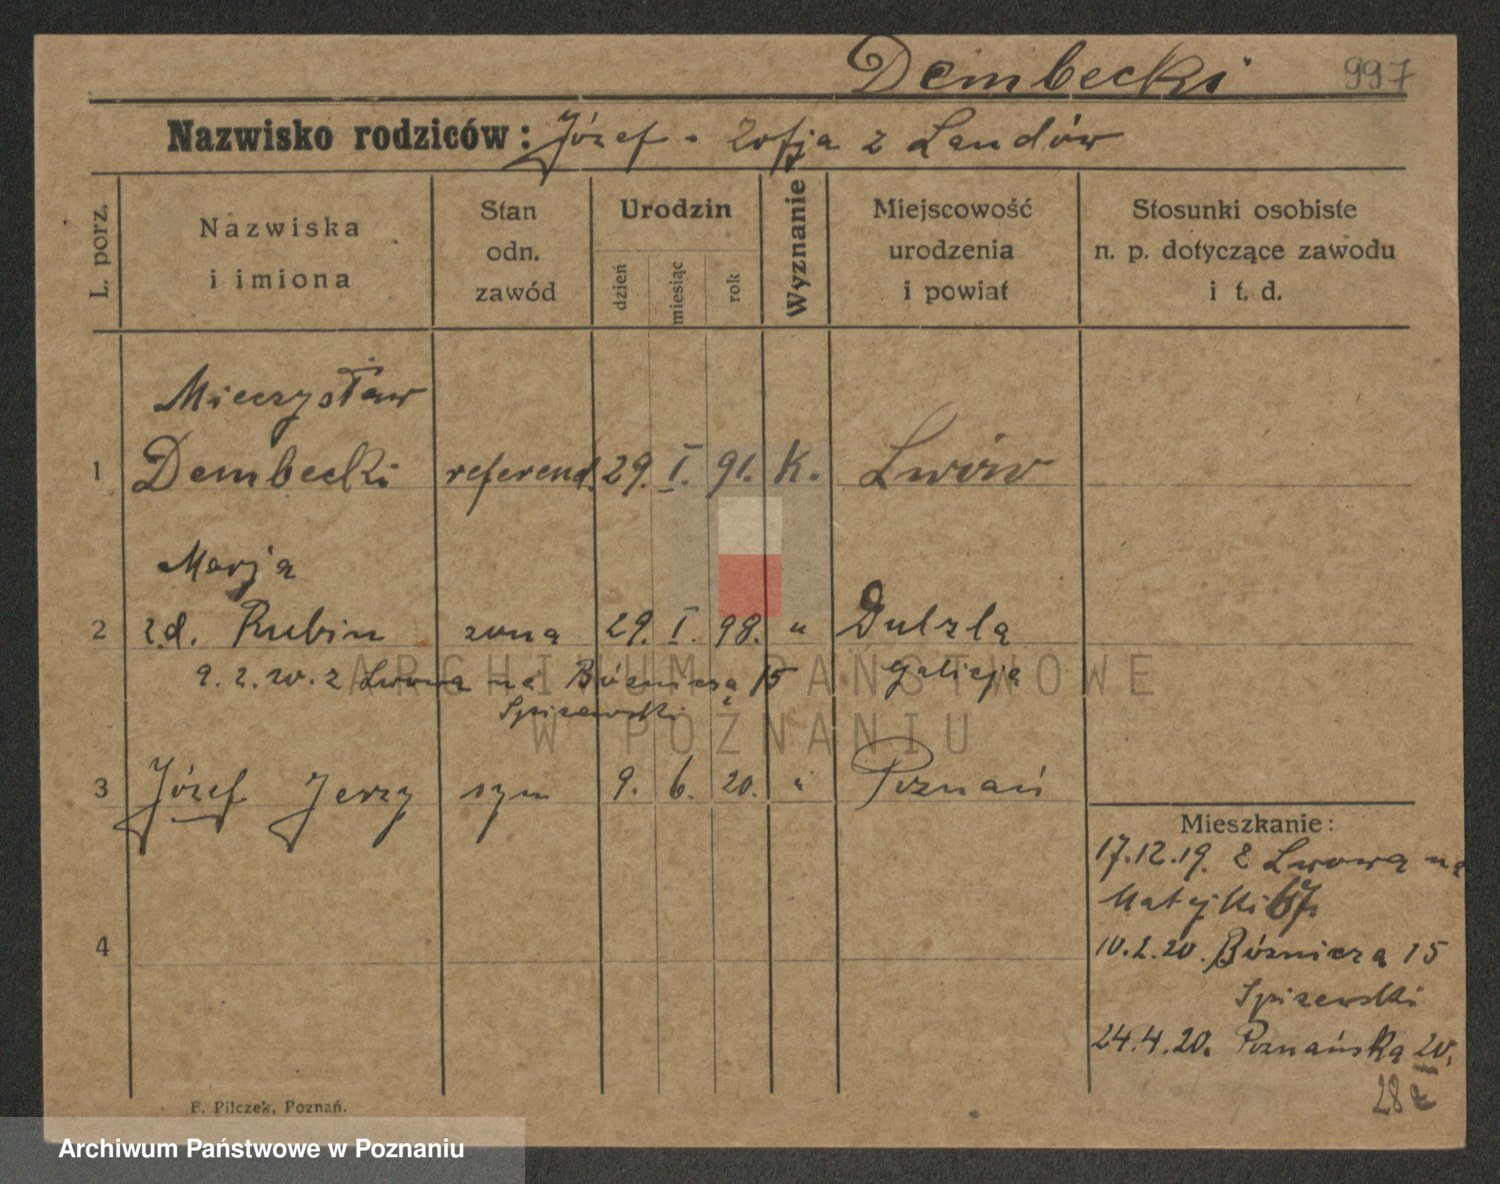 Dembecki 997
Nazwisko rodziców: Józef - Zofja z Landów
L. porz.
Nazwiska
i imiona
Stan
odn.
zawód
Urodzin
dzień
miesiąc
rok
Wyznanie
Miejscowość
urodzenia
i powiat
Stosunki osobiste
n. p. dotyczące zawodu
i t. d.
Mieczysław
1 Dembecki referend. 29. I. 91. K. Lwów
Marja
2 z d. Rubin żona 29. I. 98. "
Galicja
9. 2. 20. z Lwowa na Bóżnicza 15
Spizewski
3 Józef Jerzy syn 9. 6. 20. " Poznań
4
Mieszkanie:
17.12.19. z Lwowa na
Matejki 67.
10.2.20. Bóżnicza 15
Spizewski
24.4.20. Poznańska 20.
F. Pilczek, Poznań.
ARCHIWUM PAŃSTWOWE
W POZNANIU
Archiwum Państwowe w Poznaniu